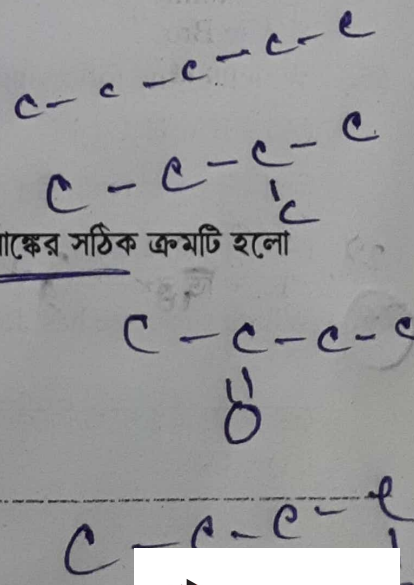 c - c - c - c - c
C - C - C - C
c
ঙ্কের সঠিক ক্রমটি হলো
C - C - C - C
O
C - C - C - C